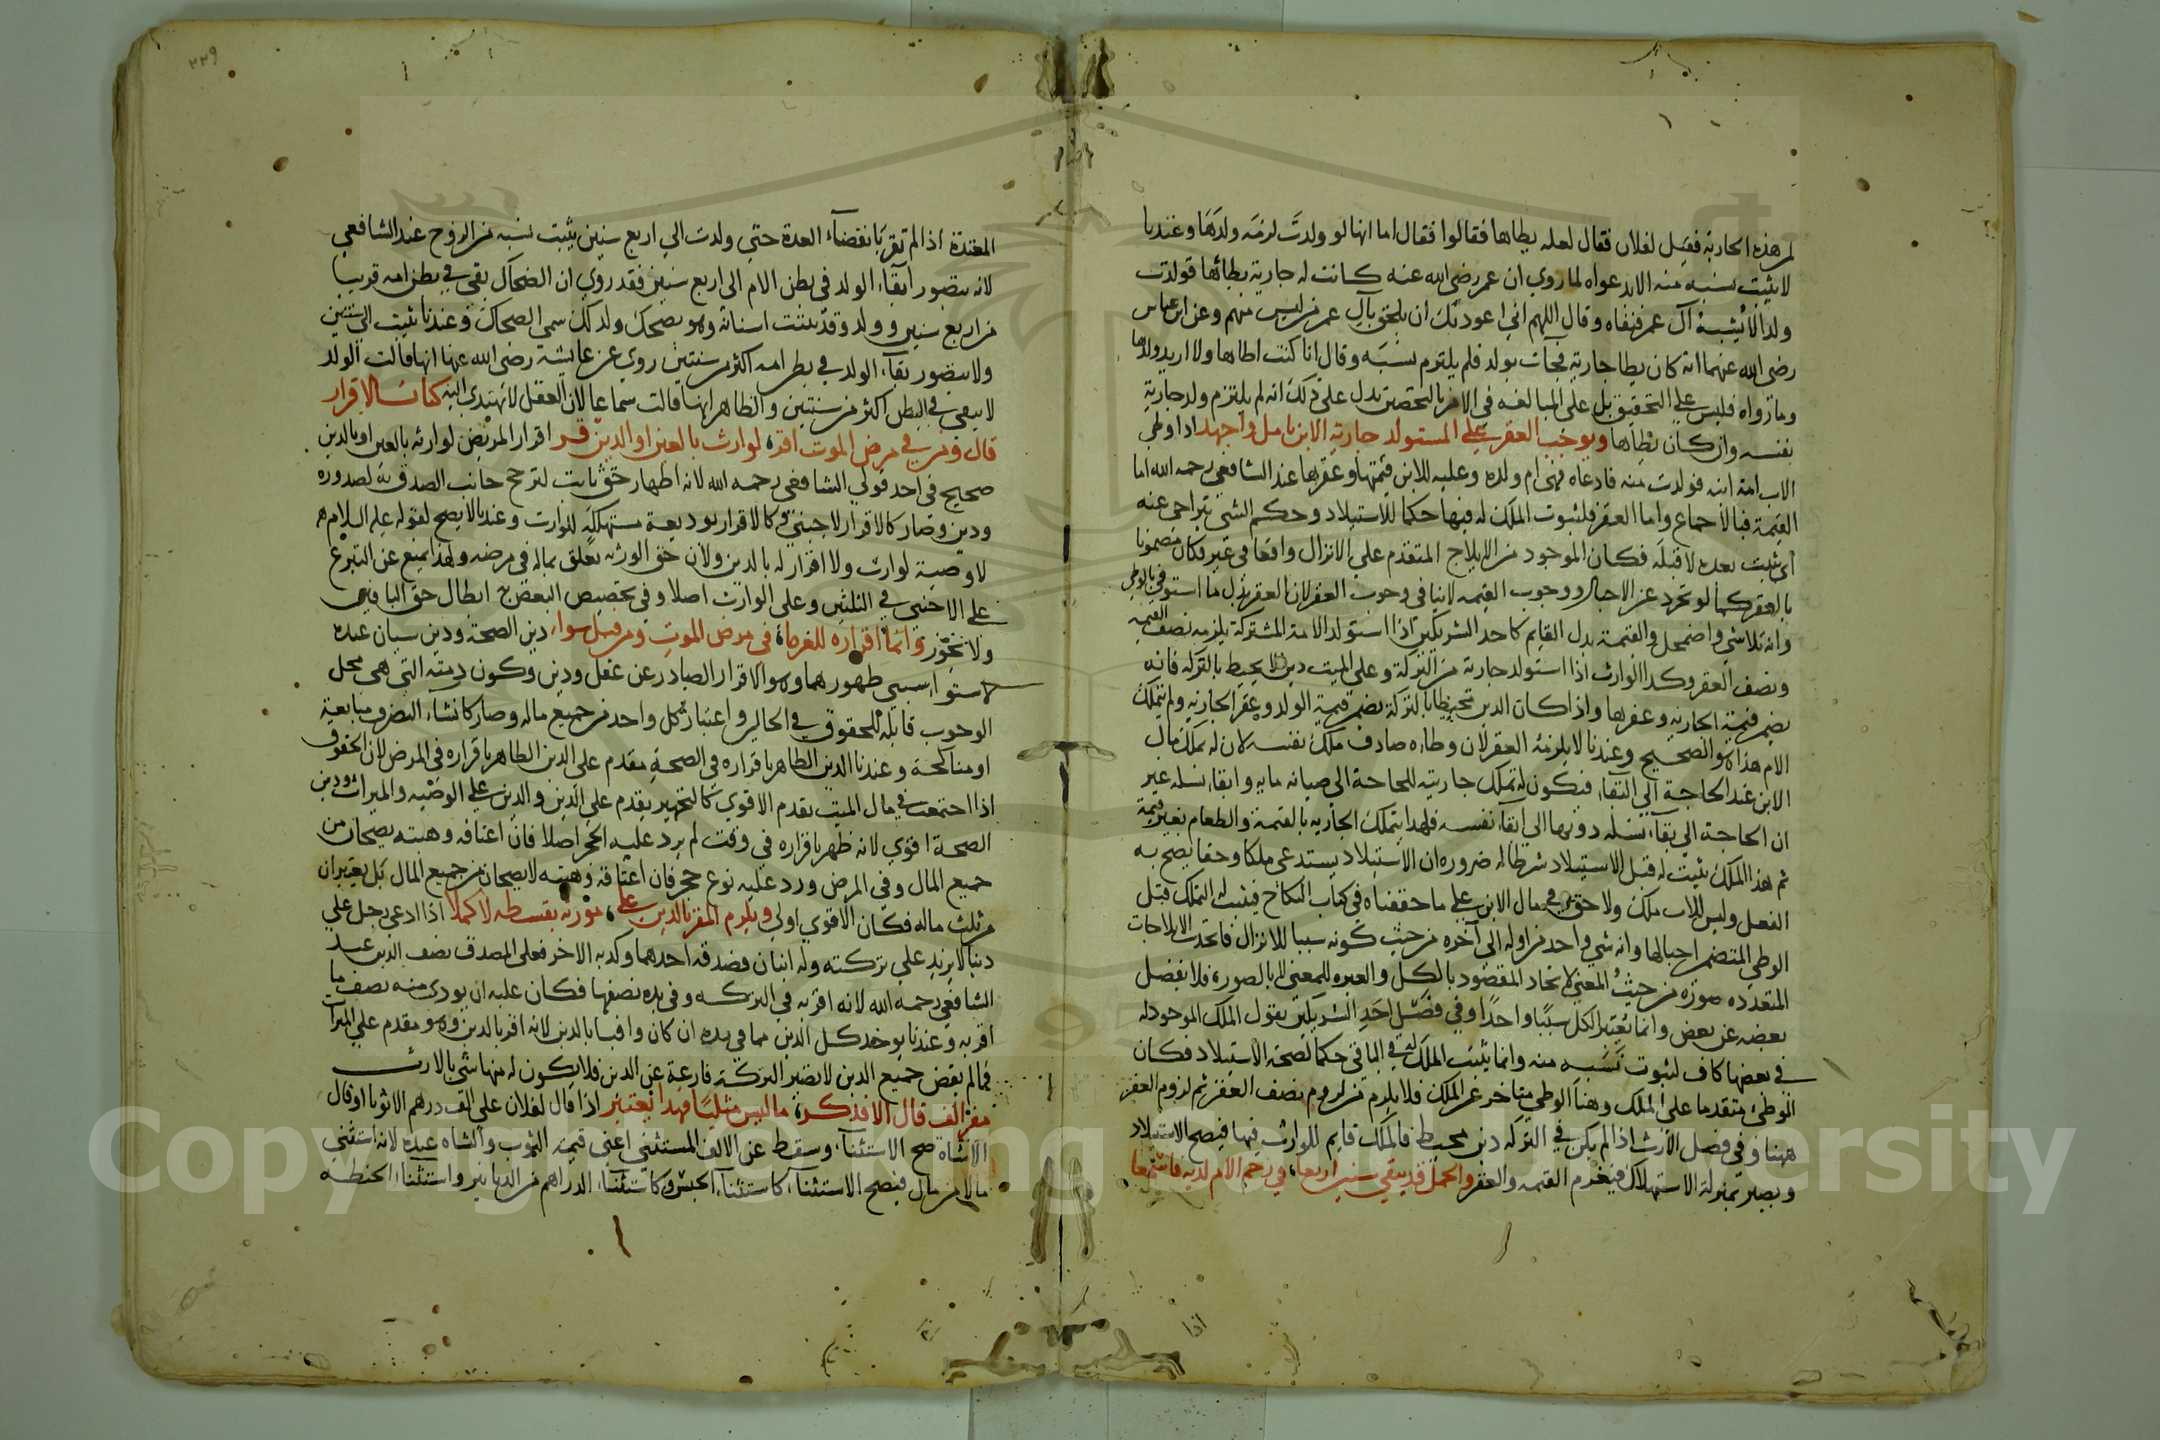 لمن هذه الجارية فقيل لفلان فقال لعله يطاها فقالوا فقال اما انها لو ولدت لزمه ولدها وعندنا
لا يثبت نسبه منه الا بدعواه لما روي ان عمر رضي الله عنه كانت له جارية يطائها فولدت
ولدا لا يشبه آل عمر فنفاه وقال اللهم اني اعوذ بك ان يلحق بآل عمر من ليس منهم وعن ابن عباس
رضي الله عنهما انه كان يطا جارية فجات بولد فلم يلتزم نسبه وقال انا كنت اطاها ولا اريد ولدها
وما رواه فليس على التحقيق بل على المبالغه في الامر بالتحصين يدل على ذلك انه لم يلتزم ولد جارية
نفسه وان كان يطاها ويوجب العقر على المستولد جارية الابن تامل واجهد اذا وطي
الاب امة ابنه فولدت منه فادعاه فهي ام ولده وعليه للابن قيمتها وعقرها عند الشافعي رحمه الله اما
القيمة فبالاجماع واما العقر فلثبوت الملك له فيها حكما للاستيلاد وحكم الشي يتراخى عنه
اي يثبت بعده لا قبله فكان الموجود من الايلاج المتقدم على الانزال واقعا في غير فكان مضمونا
بالعقر كما لو تجرد عن الاحبال ووجوب القيمه لا ينافي وجوب العقر لان العقر بدل ما استوفي بالوطي
وانه تلاشى واضمحل والقيمة بدل القايم كاحد الشريكين اذا استولد الامة المشتركة يلزمه نصف القيمه
ونصف العقر وكذا الوارث اذا استولد جارية من التركة وعلى الميت دين لا يحيط بالتركه فانه
يضمن قيمة الجاريه وعقرها واذا كان الدين محيطا بالتركة يضمن قيمة الولد وعقر الجارية ولم يتملك
الام هذا هو الصحيح وعندنا لا يلزمه العقر لان وطاه صادف ملك نفسه لان له تملك مال
الابن عند الحاجة الى البقاء فتكون له تملك جاريته للحاجة الى صيانه مايه وابقاء نسله غير
ان الحاجة الى بقاء نسله دونها الى ابقاء نفسه فلهذا يتملك الجاريه بالقيمة والطعام بغير قيمة
ثم هذا الملك يثبت له قبل الاستيلاد شرطا له ضروره ان الاستيلاد يستدعى ملكا وحقا يصح به
الفعل وليس للاب ملك ولا حق في مال الابن على ما حققناه في كتاب النكاح فيثبت له التملك قبل
الوطي المتضمن احبالها وانه شي واحد من اوله الى آخره من حيث كونه سببا للانزال فاتحدت الايلاجات
المتعدده صورة من حيث المعنى لاتحاد المقصود بالكل والعبره للمعنى لا بالصورة فلا يفصل
بعضه عن بعض وانما يعتبر الكل سببا واحدا وفي فصل احد الشريكين يقول الملك الموجود له
في بعضها كاف لثبوت نسبه منه وانما يثبت الملك له في الباقي حكما لصحة الاستيلاد فكان
الوطئ متقدما على الملك وهنا الوطي متاخر عن الملك فلا يلزم من لزوم نصف العقر ثم لزوم العقر
ههنا وفي فصل الارث اذا لم يكن في التركه دين محيط فالملك قايم للوارث فيها فيصح الاستيلاد
ويصير بمنزلة الاستهلاك فيغرم القيمه والعقر والحمل قد يبقي سنين اربعا في رحم الام لديه فاسمعا
٢٢٩
المعتدة اذا لم تقر بانقضاء العدة حتى ولدت الى اربع سنين يثبت نسبه من الزوج عند الشافعي
لانه يتصور ابقاء الولد في بطن الام الى اربع سنين فقد روي ان الضحاك بقي في بطن امه قريبا
من اربع سنين وولد وقد نبتت اسنانه وهو يضحك ولذلك سمي الضحاك وعندنا يثبت الى سنتين
ولا يتصور بقاء الولد في بطن امه اكثر من سنتين روي عن عايشة رضي الله عنها انها قالت الولد
لا يبقى في البطن اكثر من سنتين والظاهر انها قالت سماعا لان العقل لا يهتدى اليه كتاب الاقرار
قال ومن في مرض الموت اقر لوارث بالعين او الدين قر اقرار المريض لوارثه بالعين او بالدين
صحيح في احد قولي الشافعي رحمه الله لانه اظهار حق ثابت لترجح جانب الصدق به لصدوره
ودين وصار كالاقرار لاجنبي وكالاقرار بوديعة مستهلكه للوارث وعندنا لا يصح لقوله عليه السلام
لا وصية لوارث ولا اقرار له بالدين ولان حق الورثه تعلق بماله في مرضه ولهذا يمنع عن التبرع
على الاجنبي في الثلثين وعلى الوارث اصلا وفي تخصيص البعض ابطال حق الباقين
ولا تجوز وانما اقراره للغرماء في مرض الموت ومن قبل سواء دين الصحة ودين سيان عنده
لاستواء سببي ظهورهما وهو الاقرار الصادر عن عقل ودين وكون ذمته التي هي محل
الوجوب قابلة للحقوق في الحالين واعتبار كل واحد من جميع ماله وصار كانشاء التصرف مبايعة
او مناكحة وعندنا الدين الظاهر باقراره في الصحة مقدم على الدين الظاهر باقراره في المرض لان الحقوق
اذا اجتمعت في مال الميت يقدم الاقوى كالتجهيز يقدم على الدين والدين على الوصيه والميراث ودين
الصحة اقوى لانه ظهر باقراره في وقت لم يرد عليه الحجر اصلا فان اعتاقه وهبته يصحان من
جميع المال وفي المرض ورد عليه نوع حجر فان اعتاقه وهبته لا يصحان من جميع المال بل يعتبران
من ثلث ماله فكان الاقوى اولى ويلزم المقر بالدين على مورثه بقسطه لا كملا اذا ادعى رجل على
دينا لا يزيد على تركته وله ابنان فصدقه احدهما وكذبه الاخر فعلى المصدق نصف الدين عند
الشافعي رحمه الله لانه اقر به في التركه وفي يده نصفها فكان عليه ان يودى منه نصف ما
اقر به وعندنا يوخذ كل الدين مما في يده ان كان وافيا بالدين لانه اقر بالدين وهو مقدم على الميراث
فما لم يقض جميع الدين لا تصير التركة فارغة عن الدين فلا يكون له منها شي بالارث
مقر الف قال الا فذكر ما ليس مثليا فهدا يعتبر اذا قال لفلان علي الف درهم الا ثوبا او قال
الا شاة صح الاستثناء وسقط عن الالف المستثنى اعني قيمة الثوب والشاه عنده لانه استثنى
مالا من مال فيصح الاستثناء كاستثناء الجنس وكاستثناء الدراهم من الدنانير واستثناء الحنطه
Copyright © King Saud University